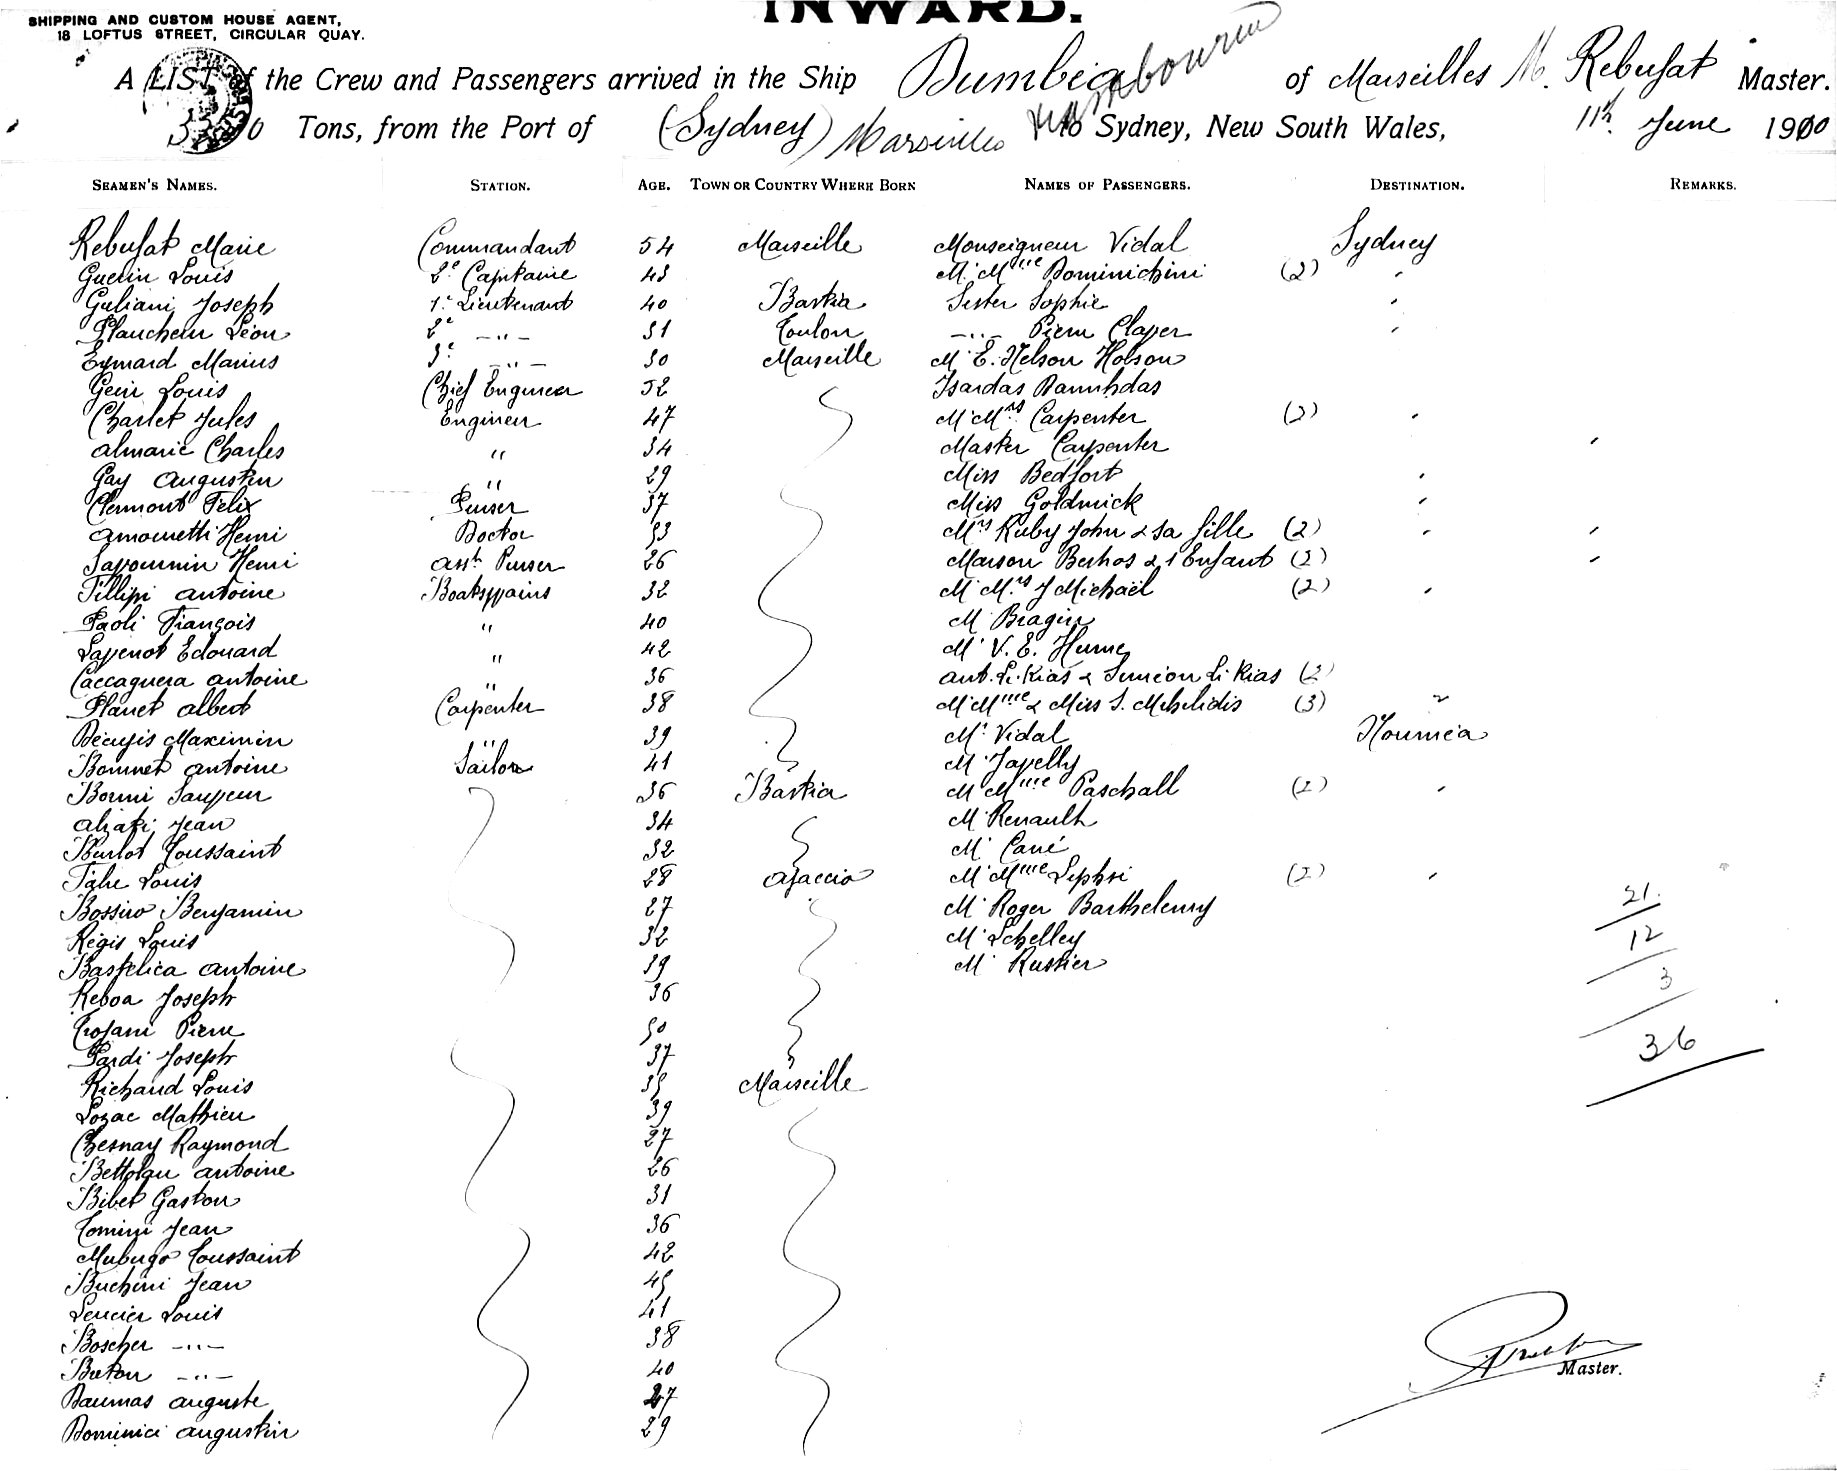 INWARD.
SHIPPING AND CUSTOM HOUSE AGENT,
18 LOFTUS STREET, CIRCULAR QUAY.
A LIST of the Crew and Passengers arrived in the Ship Dumbea of Marseilles M. Rebufat Master.
Tons, from the Port of (Sydney) Marseilles to Sydney, New South Wales, 11th June 1900
SEAMEN'S NAMES. STATION. AGE. TOWN OR COUNTRY WHERE BORN NAMES OF PASSENGERS. DESTINATION. REMARKS.
Rebufat Marie Commandant 54 Marseille Monseigneur Vidal Sydney
Guerin Louis 2e Capitaine 43 M. Mme Dominichini (2) "
Guliani Joseph 1er Lieutenant 40 Bastia Sister Sophie "
Plaucheur Léon 2e -"- 31 Toulon -"- Pierre Claver "
Eymard Marius 3e -"- 30 Marseille M. E. Nelson Hobson
Geir Louis Chief Engineer 52
Charlet Jules Engineer 47 M. Mrs Carpenter (2) "
Almaric Charles " 34 Master Carpenter "
Gay Augustin " 29 Miss Bedfort "
Clermont Felix Purser 37 Miss Goldmick "
Amouretti Henri Doctor 53 Mrs Ruby John & sa fille (2) " "
Savournin Henri Asst. Purser 26 & 1 Enfant (2) "
Fillipi Antoine Boatswains 32 M. Mrs J Michaël (2) "
Paoli François " 40 M. Bragin
Lapenot Edouard " 42 M. V. E. Hume
Caccaguera Antoine " 36 (2)
Planet Albert Carpenter 38 M. Mme & Miss S. (3) "
Décugis Maximin " 39 Mr. Vidal Nouméa
Bonnet Antoine Sailor 41 M. Japelly
Bormi 36 Bastia M. Mme Paschall (2) "
Jean 34 M. Renault
Burlot Toussaint 32 M. Cané
Louis 28 Ajaccio M. Mme (2) "
Bossiro Benjamin 27 M. Roger Barthelemy 21.
Régis Louis 32 M. Schelley 12
Bastelica Antoine 39 M. Rustier 3
Reboa Joseph 36
Trojani Pierre 50 36
Pardi Joseph 37
Richaud Louis 35 Marseille
Lozac Mathieu 39
Chesnay Raymond 27
Antoine 26
Bibet Gaston 31
Tomini Jean 36
Toussaint 42
Buchini Jean 45
Lencier Louis 41
Boscher -"- 38
Breton -"- 40
Daumas Auguste 27
Dominici Augustin 29
Master.